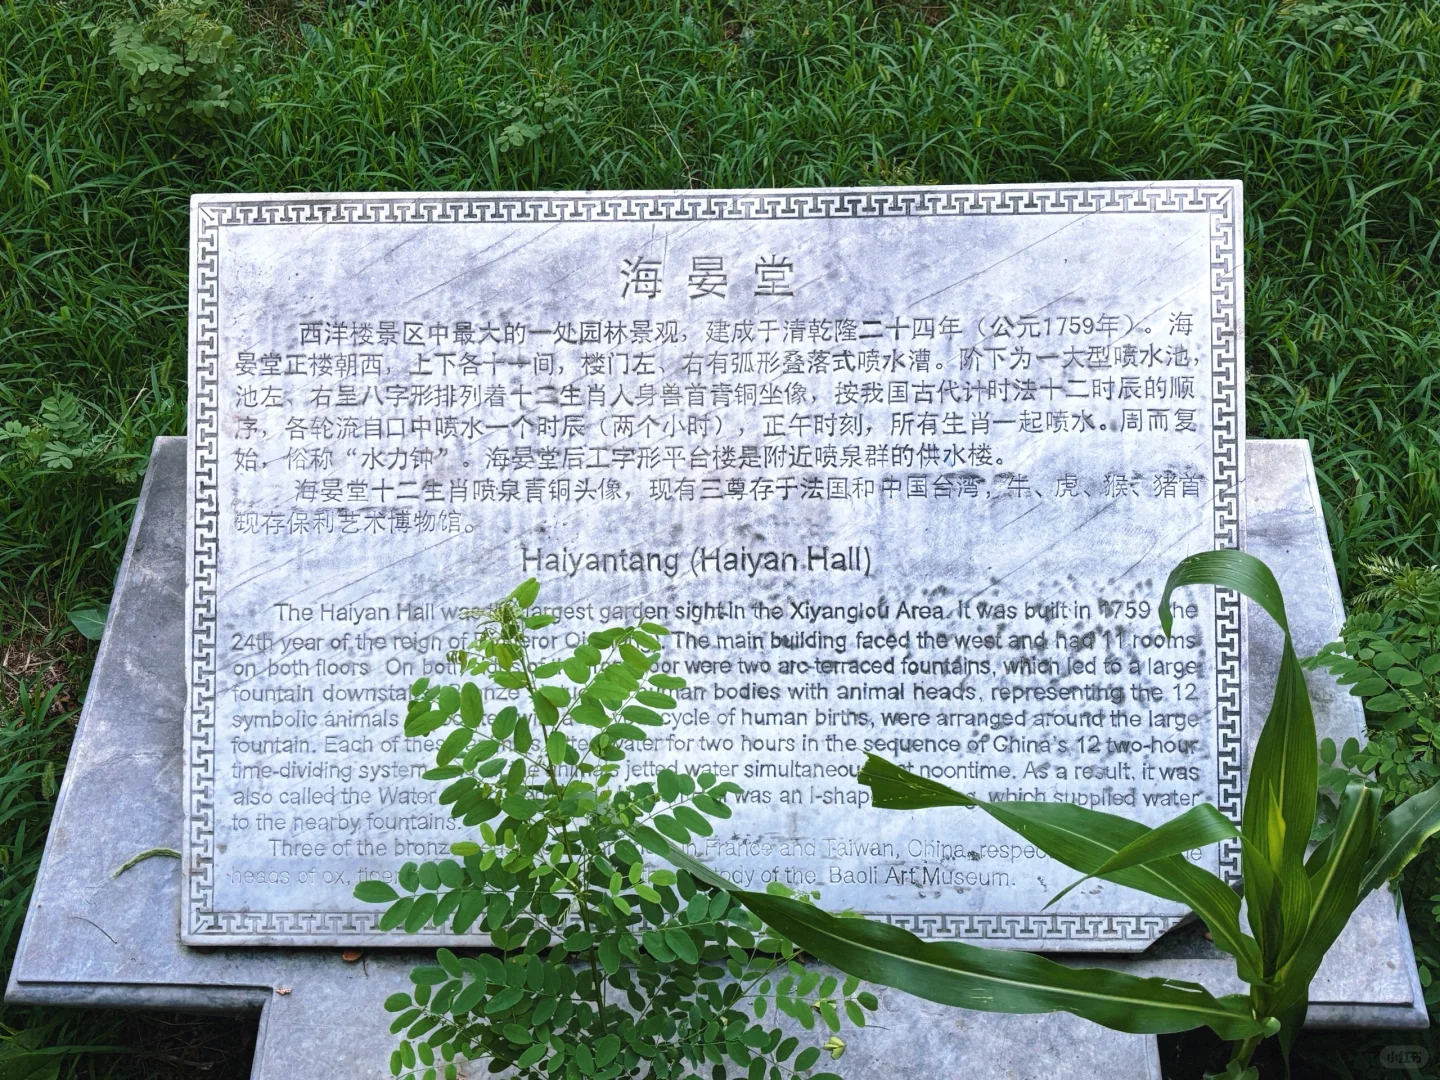 海晏堂
西洋楼景区中最大的一处园林景观，建成于清乾隆二十四年（公元1759年）。海
晏堂正楼朝西，上下各十一间，楼门左、右有弧形叠落式喷水漕。阶下为一大型喷水池，
池左、右呈八字形排列着十二生肖人身兽首青铜坐像，按我国古代计时法十二时辰的顺
序，各轮流自口中喷水一个时辰（两个小时），正午时刻，所有生肖一起喷水。周而复
始，俗称“水力钟”。海晏堂后工字形平台楼是附近喷泉群的供水楼。
海晏堂十二生肖喷泉青铜头像，现有三尊存于法国和中国台湾，牛、虎、猴、猪首
现存保利艺术博物馆。
Haiyantang (Haiyan Hall)
The Haiyan Hall was largest garden sight in the Xiyanglou Area. It was built in 1759
24th year of the reign of The main building faced the west and had 11 rooms
on both floors. On were two arc-terraced fountains, which led to a large
fountain bodies with animal heads, representing the 12
symbolic animals cycle of human births, were arranged around the large
fountain. Each of water for two hours in the sequence of China's 12 two-hour
time-dividing system jetted water simultaneously noontime. As a result, it was
also called the Water was an I-shap which supplied water
to the nearby fountains.
Three of the in France and Taiwan, China,
heads of ox, of the Baoli Art Museum.
小红书